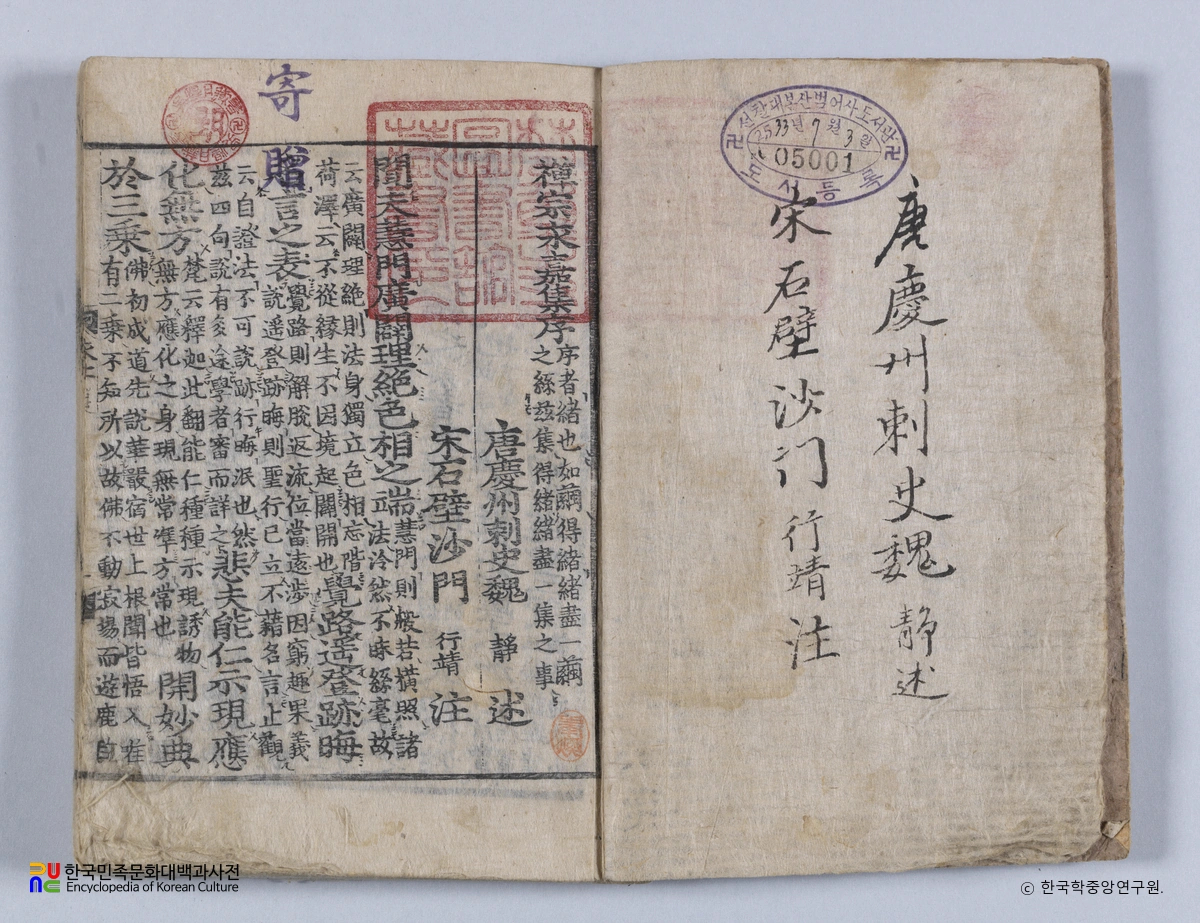 선찰대본산범어사도서관
2533년 7월 3일
05001
도서등록
唐慶州刺史魏 静 述
宋石壁沙门 行靖 注
寄贈
禪宗永嘉集序
序者緒也如繭得緒緒盡一繭
之絲玆集得緒緒盡一集之事
唐慶州刺史魏 靜 述
宋石壁沙門 行靖 注
聞夫慧門廣闢理絶色相之端
慧門則般若橫照諸
法泠然不昧絲毫故
云廣闢理絶則法身獨立色相忘階
荷澤云不從緣生不因境起闢開也
覺路遥登跡晦
言之表
覺路則解脫返流位當遠涉因窮趣果義
說遥登跡晦則聖行已立不藉名言止觀
云自證法不可說跡行晦泯也然
玆四句說有多途學者審而詳之
悲夫能仁示現應
化無方
梵云釋迦此翻能仁種種示現誘物
無方應化之身現無常準方常也
開妙典
於三乘
佛初成道先說華嚴宿世上根聞皆悟入唯
有二乘不知所以故佛不動寂場而遊鹿自
한국민족문화대백과사전
Encyclopedia of Korean Culture
© 한국학중앙연구원.